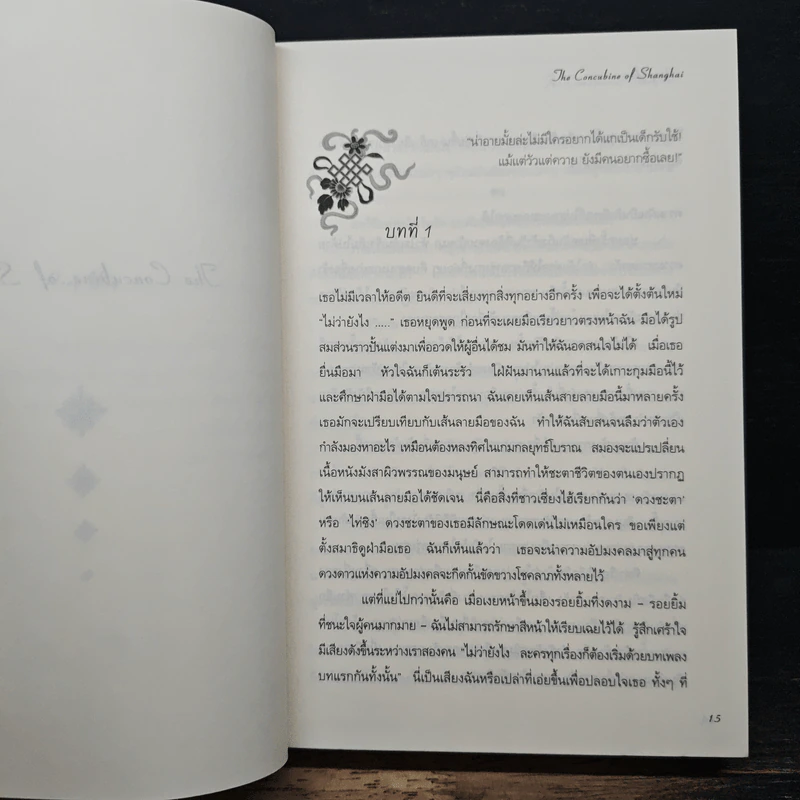 The Concubine of Shanghai
"น่าอายมั้ยล่ะไม่มีใครอยากได้แกเป็นเด็กรับใช้!
แม้แต่วัวแต่ควาย ยังมีคนอยากซื้อเลย!"
บทที่ 1
เธอไม่มีเวลาให้อดีต ยินดีที่จะเสี่ยงทุกสิ่งทุกอย่างอีกครั้ง เพื่อจะได้ตั้งต้นใหม่
"ไม่ว่ายังไง ....." เธอหยุดพูด ก่อนที่จะเผยมือเรียวยาวตรงหน้าฉัน มือได้รูป
สมส่วนราวปั้นแต่งมาเพื่ออวดให้ผู้อื่นได้ชม มันทำให้ฉันอดสนใจไม่ได้ เมื่อเธอ
ยื่นมือมา หัวใจฉันก็เต้นระรัว ใฝ่ฝันมานานแล้วที่จะได้เกาะกุมมือนี้ไว้
และศึกษาฝ่ามือได้ตามใจปรารถนา ฉันเคยเห็นเส้นสายลายมือนี้มาหลายครั้ง
เธอมักจะเปรียบเทียบกับเส้นลายมือของฉัน ทำให้ฉันสับสนจนลืมว่าตัวเอง
กำลังมองหาอะไร เหมือนต้องหลงทิศในเกมกลยุทธ์โบราณ สมองจะแปรเปลี่ยน
เนื้อหนังมังสาผิวพรรณของมนุษย์ สามารถทำให้ชะตาชีวิตของตนเองปรากฏ
ให้เห็นบนเส้นลายมือได้ชัดเจน นี่คือสิ่งที่ชาวเซี่ยงไฮ้เรียกกันว่า 'ดวงชะตา'
หรือ 'ไท่ซิง' ดวงชะตาของเธอมีลักษณะโดดเด่นไม่เหมือนใคร ขอเพียงแต่
ตั้งสมาธิดูฝ่ามือเธอ ฉันก็เห็นแล้วว่า เธอจะนำความอัปมงคลมาสู่ทุกคน
ดวงดาวแห่งความอัปมงคลจะกีดกั้นขัดขวางโชคลาภทั้งหลายไว้
แต่ที่แย่ไปกว่านั้นคือ เมื่อเงยหน้าขึ้นมองรอยยิ้มที่งดงาม – รอยยิ้ม
ที่ชนะใจผู้คนมากมาย – ฉันไม่สามารถรักษาสีหน้าให้เรียบเฉยไว้ได้ รู้สึกเศร้าใจ
มีเสียงดังขึ้นระหว่างเราสองคน "ไม่ว่ายังไง ละครทุกเรื่องก็ต้องเริ่มด้วยบทเพลง
บทแรกกันทั้งนั้น" นี่เป็นเสียงฉันหรือเปล่าที่เอ่ยขึ้นเพื่อปลอบใจเธอ ทั้งๆ ที่
15